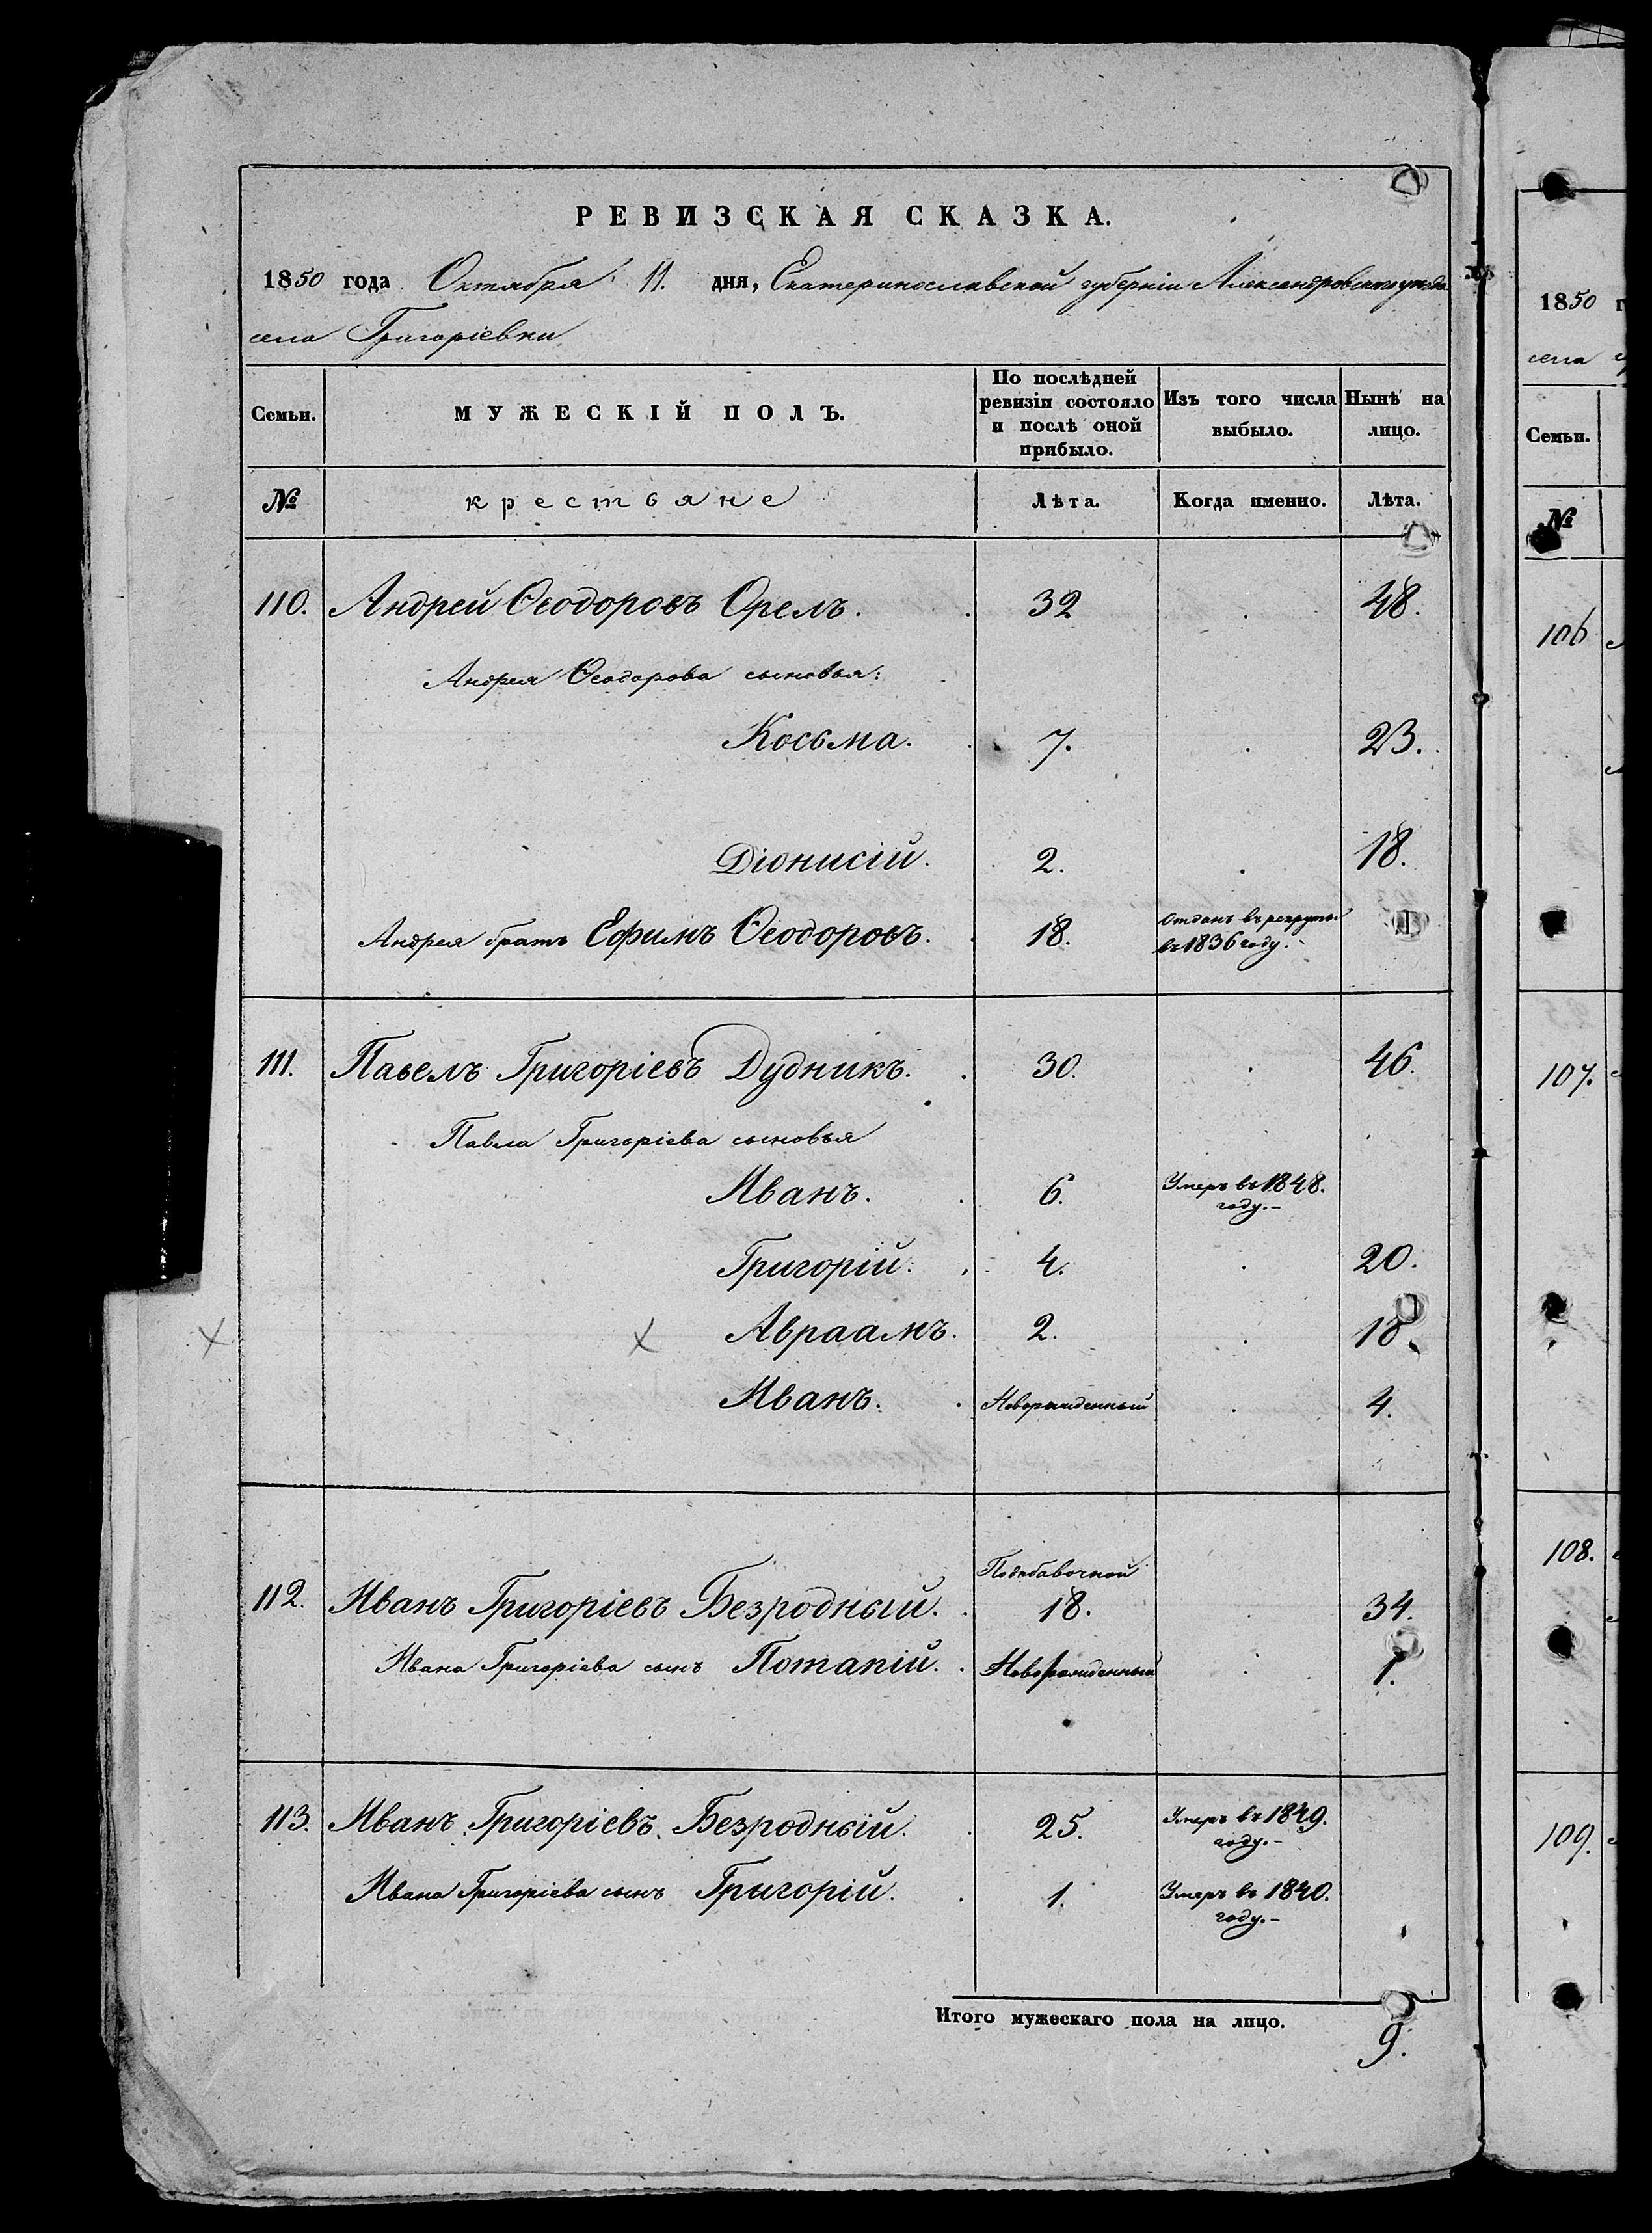 РЕВИЗСКАЯ СКАЗКА.
1850 года Октября 11. дня, Екатеринославской губерніи Александровскаго уѣзда
села Григоріевки
Семьи. МУЖЕСКІЙ ПОЛЪ. По послѣдней ревизіи состояло и послѣ оной прибыло. Изъ того числа выбыло. Нынѣ на лицо.
№ крестьяне Лѣта. Когда именно. Лѣта.
110. Андрей Ѳеодоровъ Орелъ. 32 48.
Андрея Ѳеодорова сыновья:
Косьма. 7. 23.
Діонисій. 2. 18.
Андрея братъ Ефимъ Ѳеодоровъ. 18. Отданъ въ рекруты
въ 1836 году.
111. Павелъ Григоріевъ Дудникъ. 30. 46.
Павла Григоріева сыновья
Иванъ. 6. Умеръ въ 1848.
году.-
Григорій. 4. 20.
Авраамъ. 2. 18.
Иванъ. Новорожденный 4.
112. Иванъ Григоріевъ Безродный. 18. 34.
Ивана Григоріева сынъ Потапій. Новорожденный 1.
113. Иванъ Григоріевъ Безродный. 25. Умеръ въ 1849.
году.-
Ивана Григоріева сынъ Григорій. 1. Умеръ въ 1840.
году.-
Итого мужескаго пола на лицо. 9.
1850 г
села
Семьи.
№
106
107.
108.
109.